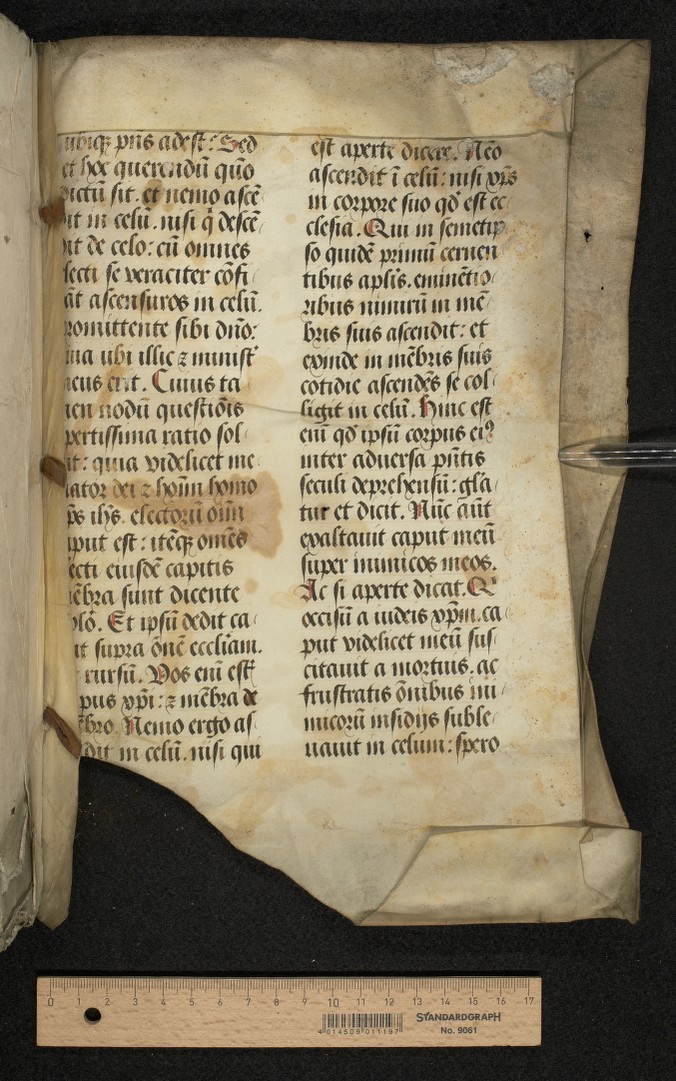 ubiqꝫ pñs adest: Sed
et hoc querendū quō
dictū sit. et nemo ascē
it in celū. nisi q̇ descē
it de celo: cū omnes
lecti se veraciter cōfi
āt ascensuros in celū.
romittente sibi dño:
ubi illic ⁊ minist
eus erit. Cuius ta
en nodū questiōis
pertissima ratio sol
it: quia videlicet me
iator dei ⁊ hoīm homo
ps ihs. electorū oīm
put est: itēqꝫ omēs
ecti eiusdē capitis
ēbra sunt dicente
Et ipsū dedit ca
ut supra ōnē eccliam.
rursū. Vos eni estꝭ
pus xp̄i: ⁊ mēbra de
bro. Nemo ergo as
dit in celū. nisi qui
est aperte dicere. Nēo
ascendit ī celū: nisi xp̄s
in corpore suo qđ est ec
clesia. Qui in semetip
so quidē primū cernen
tibus aplīs. eminētio
ribus nimirū in mē
bris suis ascendit: et
exinde in mēbris suis
cotidie ascendēs se col
ligit in celū. Hinc est
enī qđ ipsū corpus eiꝰ
inter aduersa pñtis
seculi deprehensū: glā
tur et dicit. Nūc aūt
exaltauit caput meū
super inimicos meos.
Ac si aperte dicat. Qꝛ
occisū a iudeis xp̄m. ca
put videlicet meū sus
citauit a mortuis. ac
frustratis ōnibus ini
micorū insidijs suble
uauit in celum: spero
0 1 2 3 4 5 6 7 8 9 10 11 12 13 14 15 16 17
4 014509 011197
STANDARDGRAPH
No. 9061